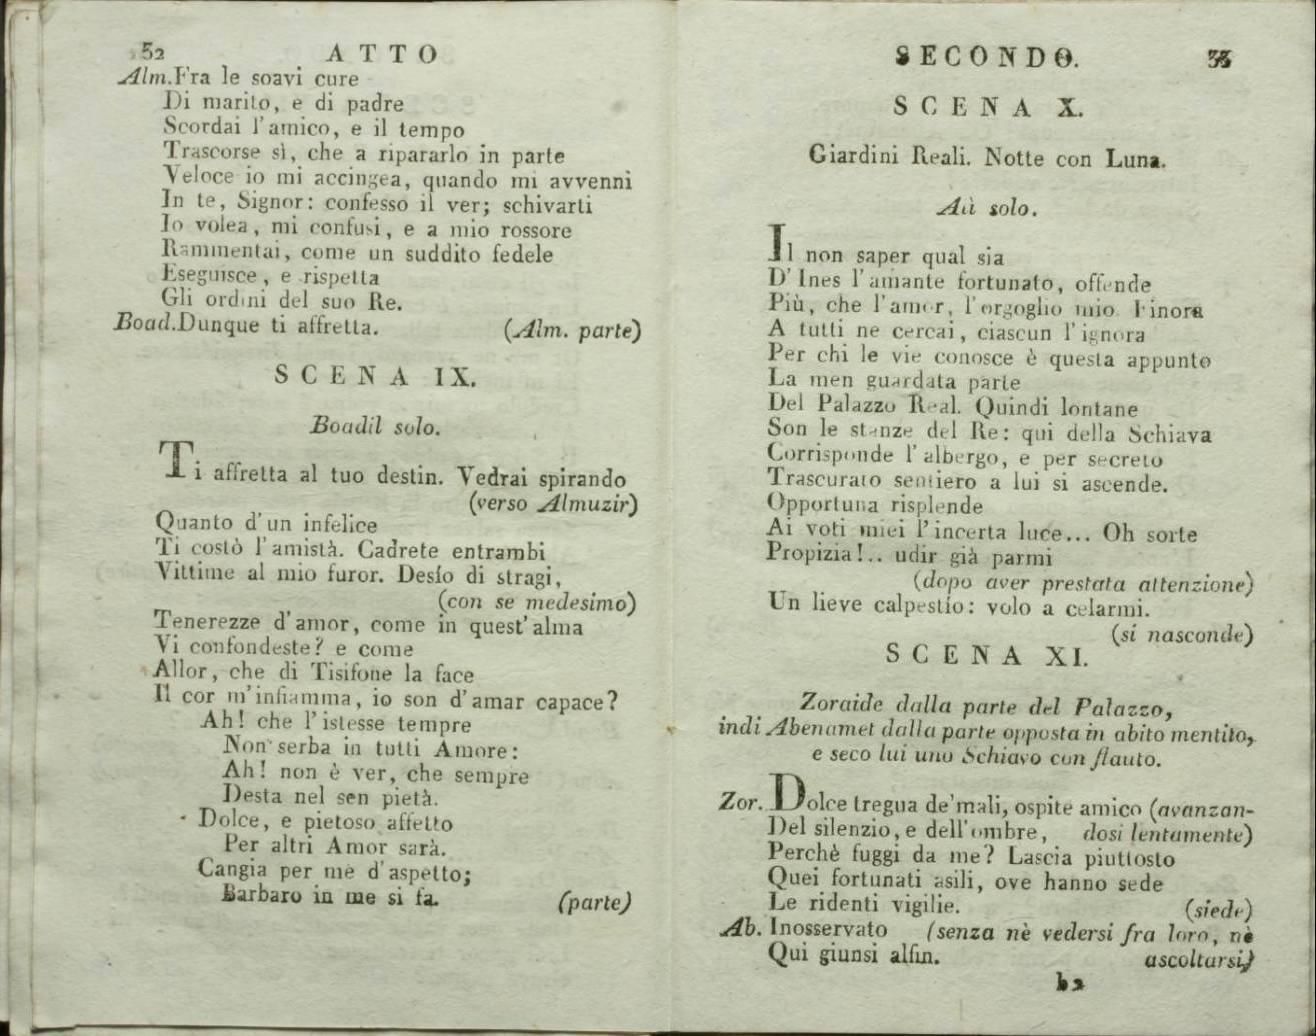 52 ATTO
Alm. Fra le soavi cure
Di marito, e di padre
Scordai l'amico, e il tempo
Trascorse sì, che a ripararlo in parte
Veloce io mi accingea, quando mi avvenni
In te, Signor: confesso il ver; schivarti
Io volea, mi confusi, e a mio rossore
Rammentai, come un suddito fedele
Eseguisce, e rispetta
Gli ordini del suo Re.
Boad. Dunque ti affretta. (Alm. parte)
SCENA IX.
Boadil solo.
Ti affretta al tuo destin. Vedrai spirando
(verso Almuzir)
Quanto d'un infelice
Ti costò l'amistà. Cadrete entrambi
Vittime al mio furor. Desío di stragi,
(con se medesimo)
Tenerezze d'amor, come in quest'alma
Vi confondeste? e come
Allor, che di Tisifone la face
Il cor m'infiamma, io son d'amar capace?
Ah! che l'istesse tempre
Non serba in tutti Amore:
Ah! non è ver, che sempre
Desta nel sen pietà.
Dolce, e pietoso affetto
Per altri Amor sarà.
Cangia per me d'aspetto;
Barbaro in me si fa. (parte)
SECONDO. 33
SCENA X.
Giardini Reali. Notte con Luna.
Alì solo.
Il non saper qual sia
D'Ines l'amante fortunato, offende
Più, che l'amor, l'orgoglio mio. Finora
A tutti ne cercai, ciascun l'ignora
Per chi le vie conosce è questa appunto
La men guardata parte
Del Palazzo Real. Quindi lontane
Son le stanze del Re: qui della Schiava
Corrisponde l'albergo, e per secreto
Trascurato sentiero a lui si ascende.
Opportuna risplende
Ai voti miei l'incerta luce... Oh sorte
Propizia!.. udir già parmi
(dopo aver prestata attenzione)
Un lieve calpestío: volo a celarmi.
(si nasconde)
SCENA XI.
Zoraide dalla parte del Palazzo,
indi Abenamet dalla parte opposta in abito mentito,
e seco lui uno Schiavo con flauto.
Zor. Dolce tregua de'mali, ospite amico (avanzan-
Del silenzio, e dell'ombre, dosi lentamente)
Perchè fuggi da me? Lascia piuttosto
Quei fortunati asili, ove hanno sede
Le ridenti vigilie. (siede)
Ab. Inosservato (senza nè vedersi fra loro, nè
Qui giunsi alfin. ascoltarsi)
b2